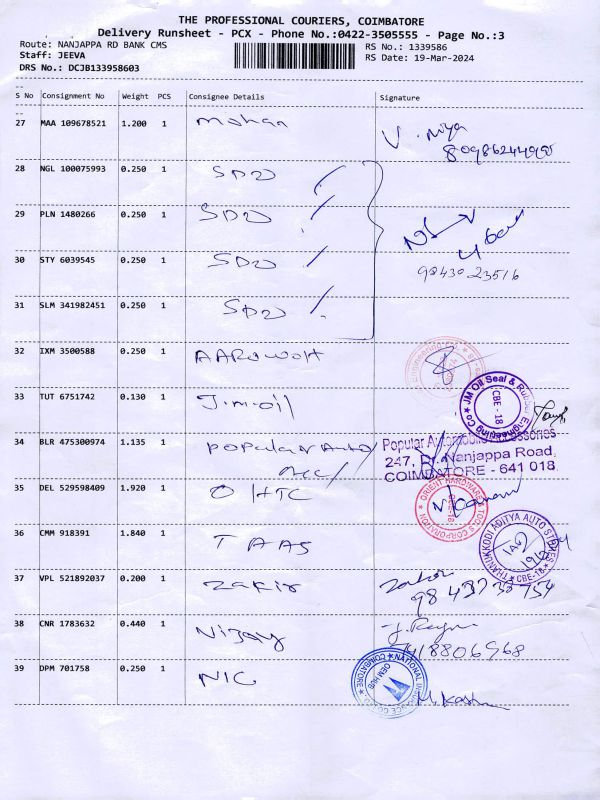 THE PROFESSIONAL COURIERS, COIMBATORE
Delivery Runsheet - PCX - Phone No.:0422-3505555 - Page No.:3
Route: NANJAPPA RD BANK CMS
RS No.: 1339586
Staff: JEEVA
RS Date: 19-Mar-2024
DRS No.: DCJB133958603
S No Consignment No Weight PCS Consignee Details Signature
27 MAA 109678521 1.200 1 mohan
28 NGL 100075993 0.250 1
29 PLN 1480266 0.250 1
30 STY 6039545 0.250 1
9843023516
31 SLM 341982451 0.250 1
32 IXM 3500588 0.250 1
33 TUT 6751742 0.130 1 J.m-oil
JM Oil Seal & Rubber Engineering Co
CBE-18
34 BLR 475300974 1.135 1 popular Auto
Acc//
Popular Automobile Accessories
247, Nanjappa Road,
COIMBATORE - 641 018.
35 DEL 529598409 1.920 1 OHTC
ORIENT HARDWARES TOOLS CORPORATION
36 CMM 918391 1.840 1 TAAS
THANUKKODI ADITYA AUTO STORES
CBE-18
37 VPL 521892037 0.200 1 Zakir
38 CNR 1783632 0.440 1 Nijay
39 DPM 701758 0.250 1 NIC
NATIONAL INSURANCE CO
COIMBATORE